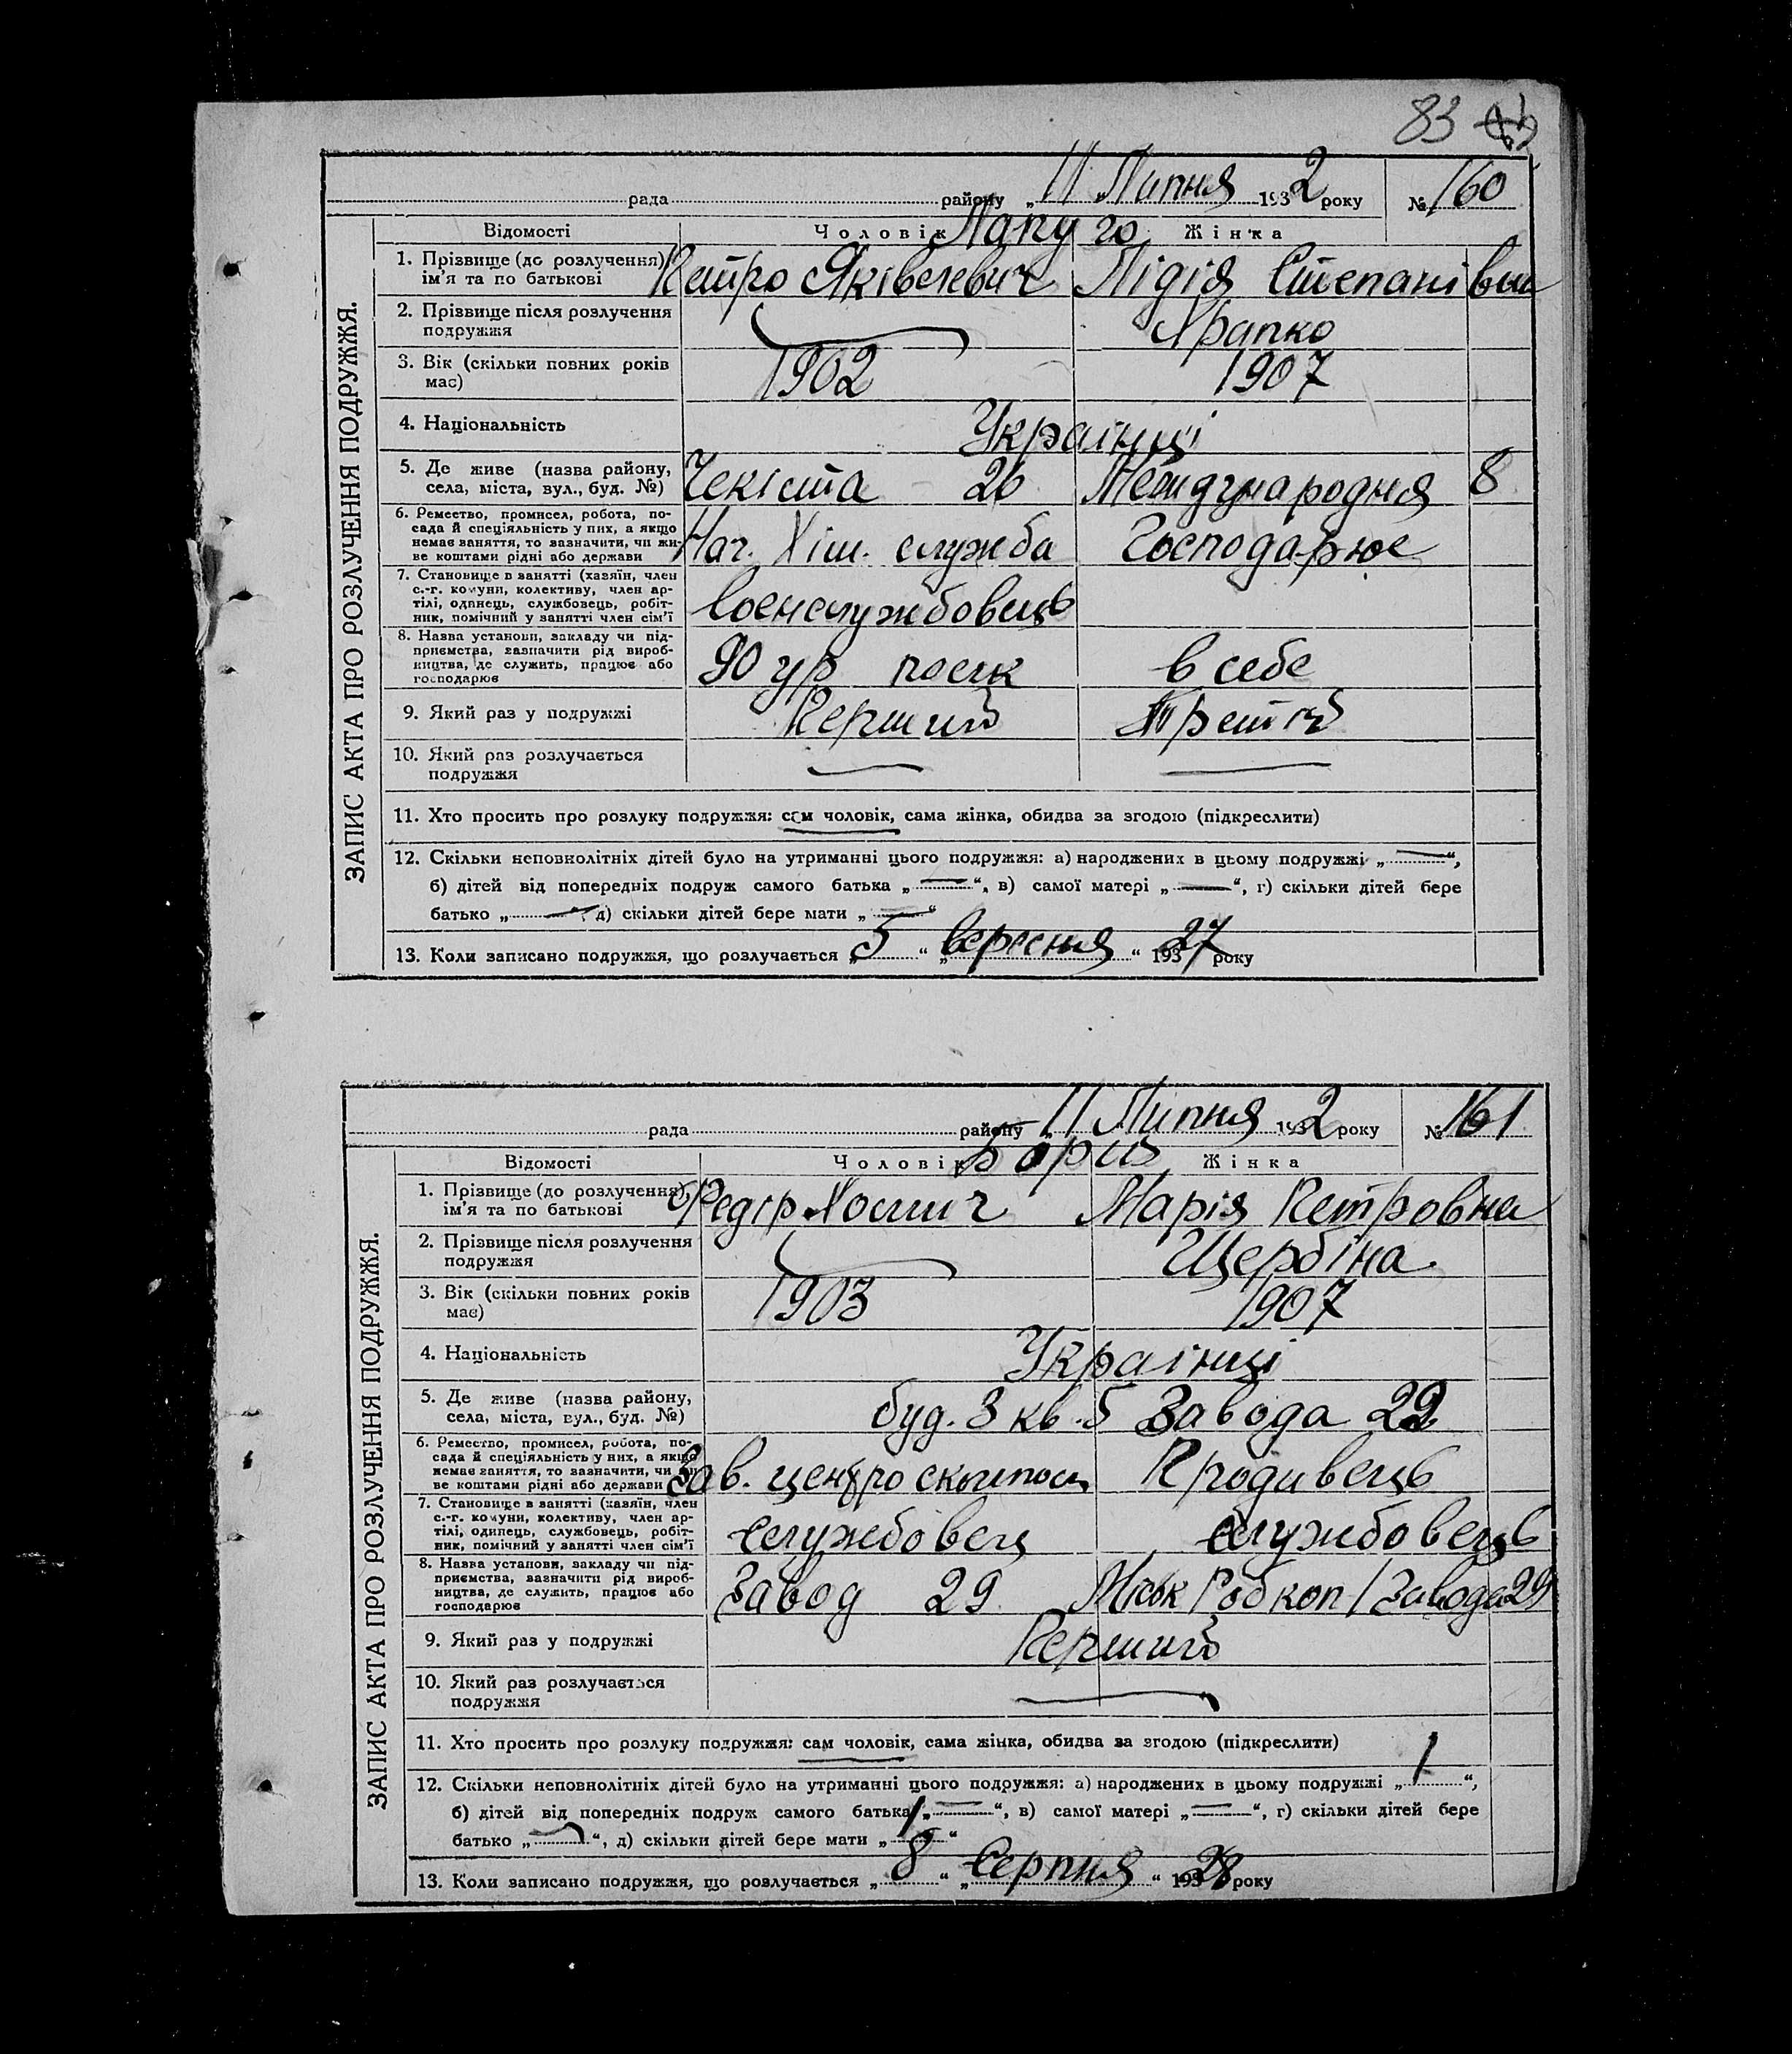 83
рада районy „ 11 Липня 1932 року № 160
Відомості Чоловік Жінка
Лапуго
1. Прізвище (до розлучення) Петро Яківелевич Лідія Степанівна
ім'я та по батькові
2. Прізвище після розлучення Храпко
подружжя
3. Вік (скільки повних років 1902 1907
має)
4. Національність Українці
5. Де живе (назва району, Чекіста 26 Международня 8
села, міста, вул., буд. №)
6. Ремество, промисел, робота, по-
сада й спеціяльність у них, а якщо
немає заняття, то зазначити, чи жи- Нач. Хім. служба Господарює
ве коштами рідні або держави
7. Становище в занятті (хазяїн, член
с.-г. комуни, колективу, член ар-
тілі, одинець, службовець, робіт- Военслужбовець
ник, помічний у занятті член сім'ї
8. Назва установи, закладу чи під-
приємства, зазначити рід вироб-
ництва, де служить, працює або 90 ур полк в себе
господарює
9. Який раз у подружжі Перший Третій
10. Який раз розлучається
подружжя
11. Хто просить про розлуку подружжя: сам чоловік, сама жінка, обидва за згодою (підкреслити)
12. Скільки неповнолітніх дітей було на утриманні цього подружжя: а) народжених в цьому подружжі „ — “,
б) дітей від попередніх подруж самого батька „ — “, в) самої матері „ — “, г) скільки дітей бере
батько „ — “, д) скільки дітей бере мати „ — “
13. Коли записано подружжя, що розлучається „ 5 “ „ вересня “ 193 27 року
ЗАПИС АКТА ПРО РОЗЛУЧЕННЯ ПОДРУЖЖЯ.
рада району „ 11 Липня 1932 року № 161
Відомості Чоловік Жінка
Борив
1. Прізвище (до розлучення) Федір Хомич Марія Петровна
ім'я та по батькові
2. Прізвище після розлучення Щербіна
подружжя
3. Вік (скільки повних років 1903 1907
має)
4. Національність Українці
5. Де живе (назва району, буд. 3 кв. 5 Завода 29
села, міста, вул., буд. №)
6. Ремество, промисел, робота, по-
сада й спеціяльність у них, а якщо
немає заняття, то зазначити, чи жи- Зав. Продавець
ве коштами рідні або держави
7. Становище в занятті (хазяїн, член
с.-г. комуни, колективу, член ар-
тілі, одинець, службовець, робіт- службовец службовець
ник, помічний у занятті член сім'ї
8. Назва установи, закладу чи під-
приємства, зазначити рід вироб-
ництва, де служить, працює або Завод 29 Міськ Робкоп / Завода 29
господарює
9. Який раз у подружжі Перший
10. Який раз розлучається
подружжя
11. Хто просить про розлуку подружжя: сам чоловік, сама жінка, обидва за згодою (підкреслити)
12. Скільки неповнолітніх дітей було на утриманні цього подружжя: а) народжених в цьому подружжі „ 1 “,
б) дітей від попередніх подруж самого батька „ — “, в) самої матері „ — “, г) скільки дітей бере
батько „ — “, д) скільки дітей бере мати „ 1 “
13. Коли записано подружжя, що розлучається „ 8 “ „ Серпня “ 193 28 року
ЗАПИС АКТА ПРО РОЗЛУЧЕННЯ ПОДРУЖЖЯ.